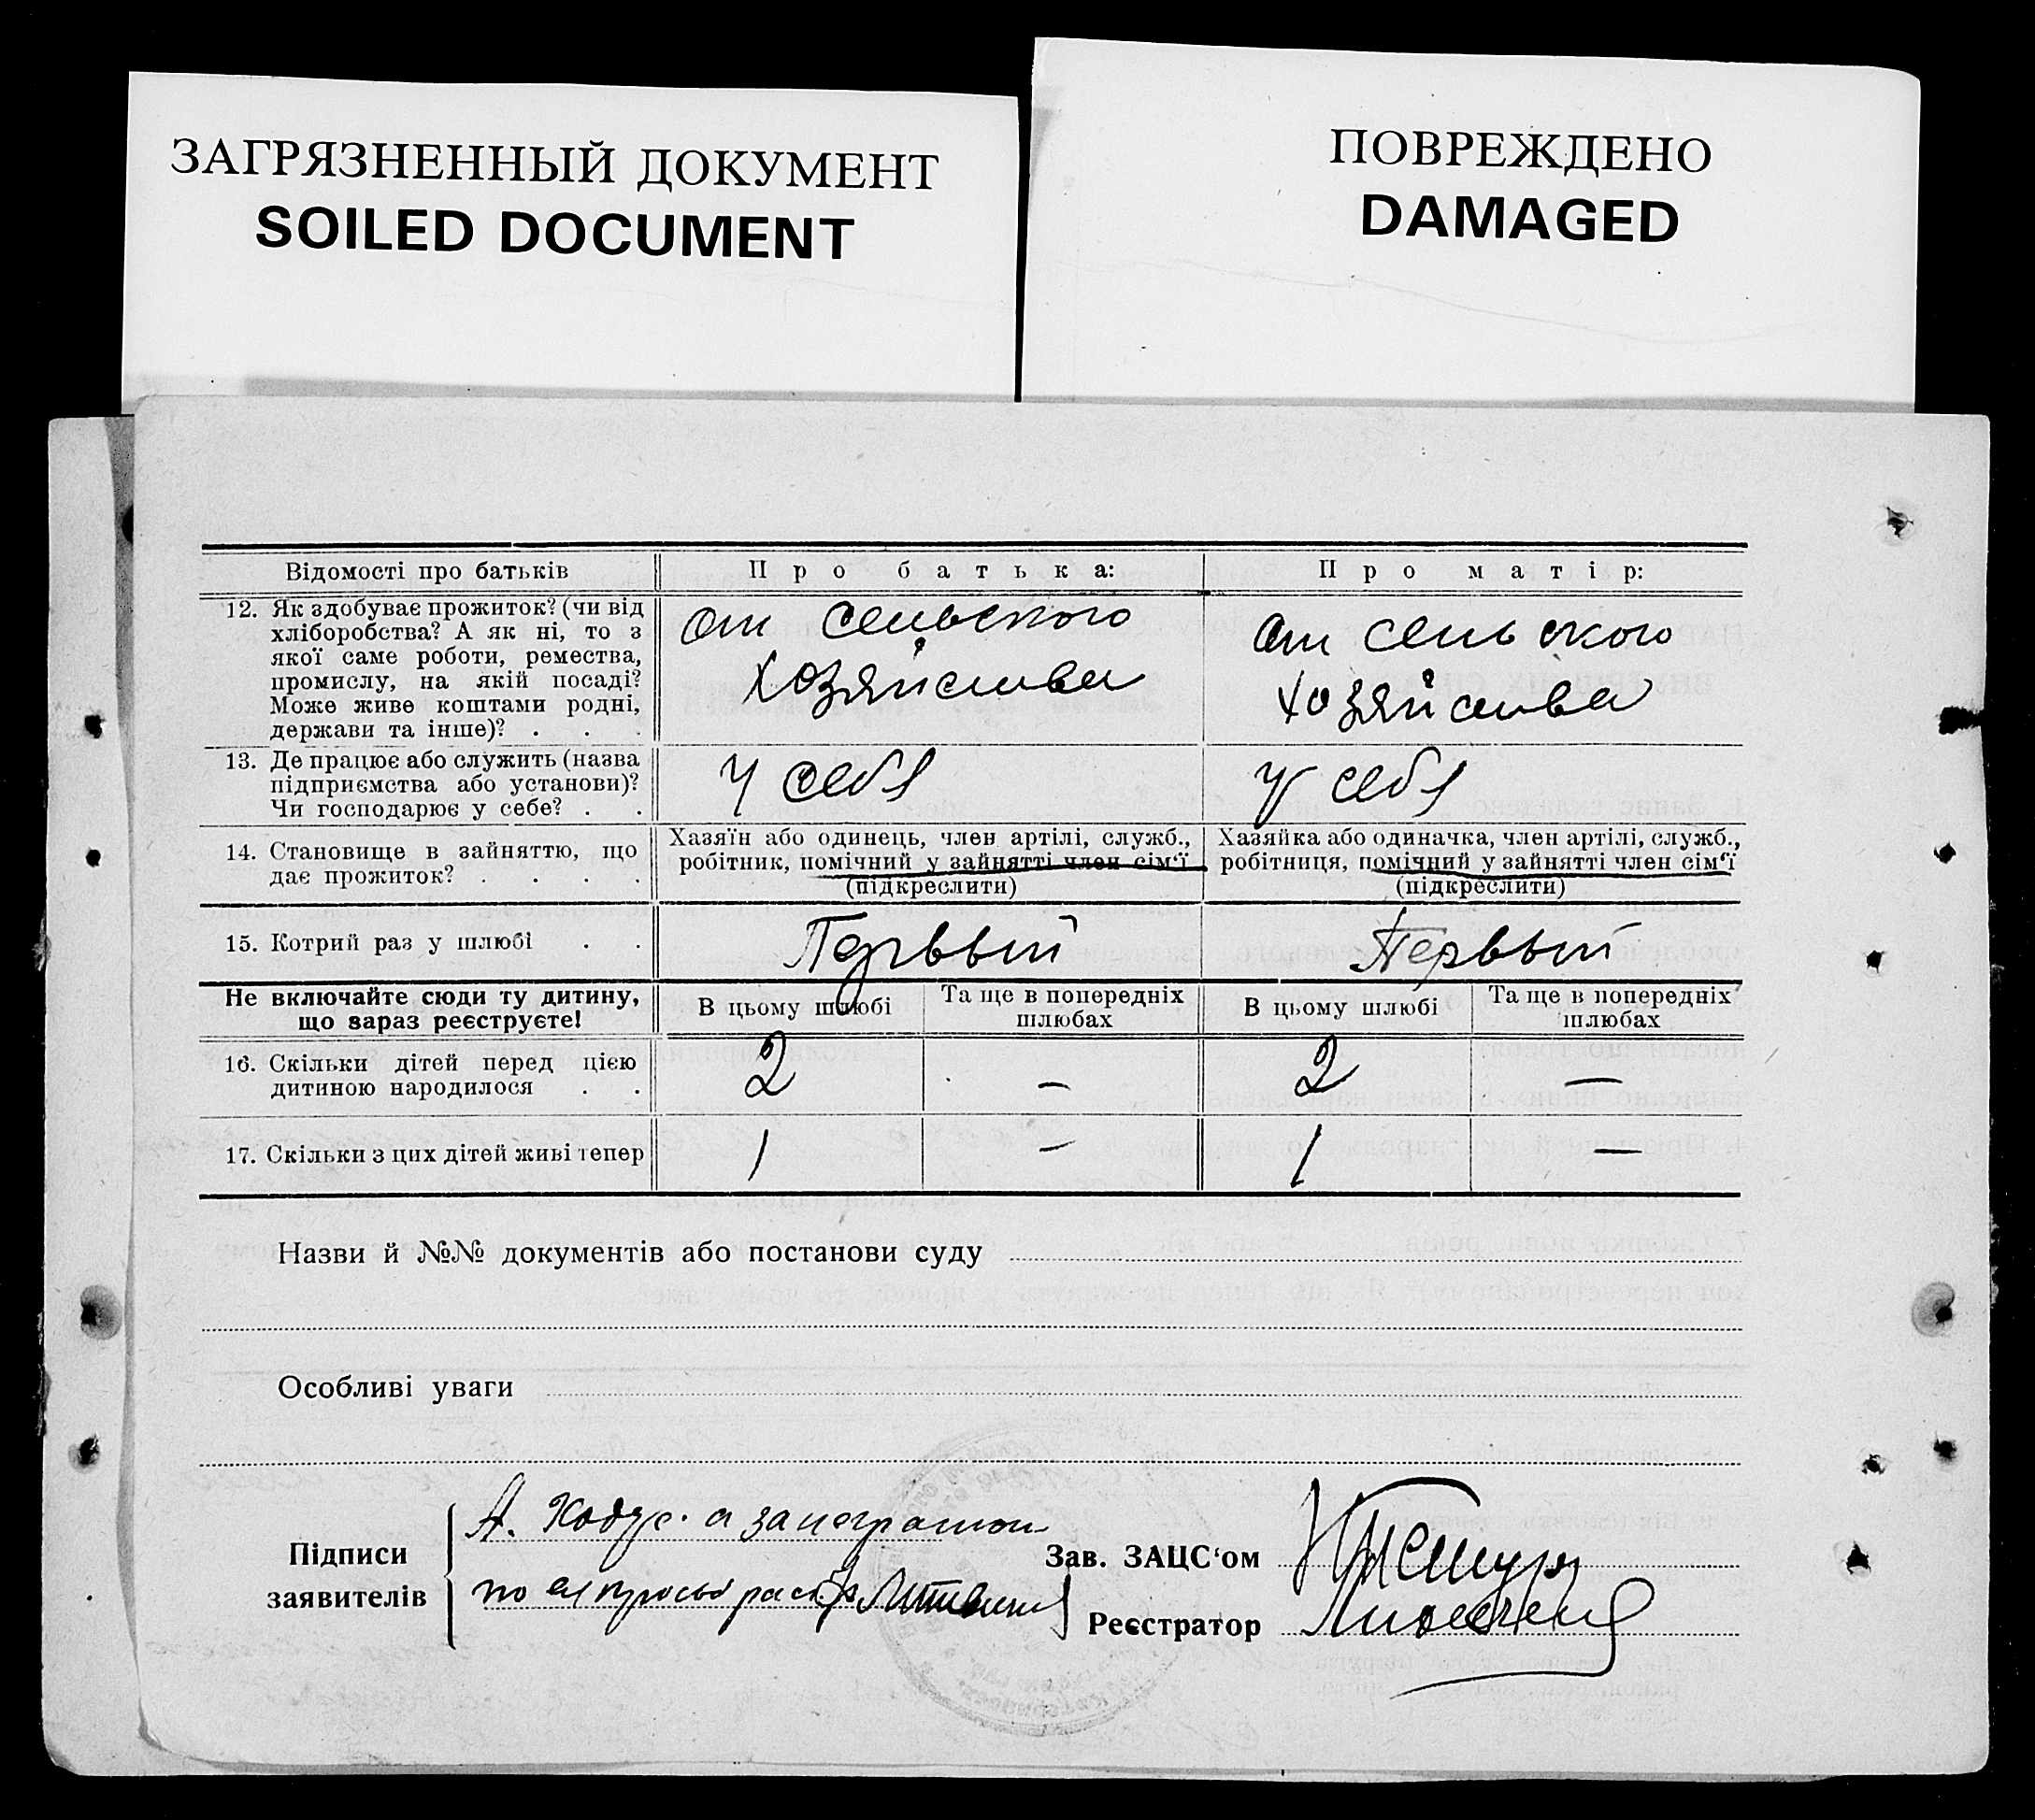 ЗАГРЯЗНЕННЫЙ ДОКУМЕНТ
SOILED DOCUMENT
ПОВРЕЖДЕНО
DAMAGED
Відомості про батьків
Про батька:
Про матір:
12. Як здобуває прожиток? (чи від
хліборобства? А як ні, то з
якої саме роботи, ремества,
промислу, на якій посаді?
Може живе коштами родні,
держави та інше)? . . .
от сельского
хозяйства
от сельского
хозяйства
13. Де працює або служить (назва
підприємства або установи)?
Чи господарює у себе? . .
у себя
у себя
14. Становище в зайняттю, що
дає прожиток? . . . .
Хазяїн або одинець, член артілі, служб.,
робітник, помічний у зайнятті член сім'ї
(підкреслити)
Хазяйка або одиначка, член артілі, служб.,
робітниця, помічний у зайнятті член сім'ї
(підкреслити)
15. Котрий раз у шлюбі . .
Первый
Первый
Не включайте сюди ту дитину,
що зараз реєструєте!
В цьому шлюбі
Та ще в попередніх
шлюбах
В цьому шлюбі
Та ще в попередніх
шлюбах
16. Скільки дітей перед цією
дитиною народилося . .
2
—
2
—
17. Скільки з цих дітей живі тепер
1
—
1
—
Назви й №№ документів або постанови суду
Особливі уваги
Підписи
заявителів
А. а за неграмотн
по ея просьб распис Литвин
Зав. ЗАЦС'ом
Реєстратор